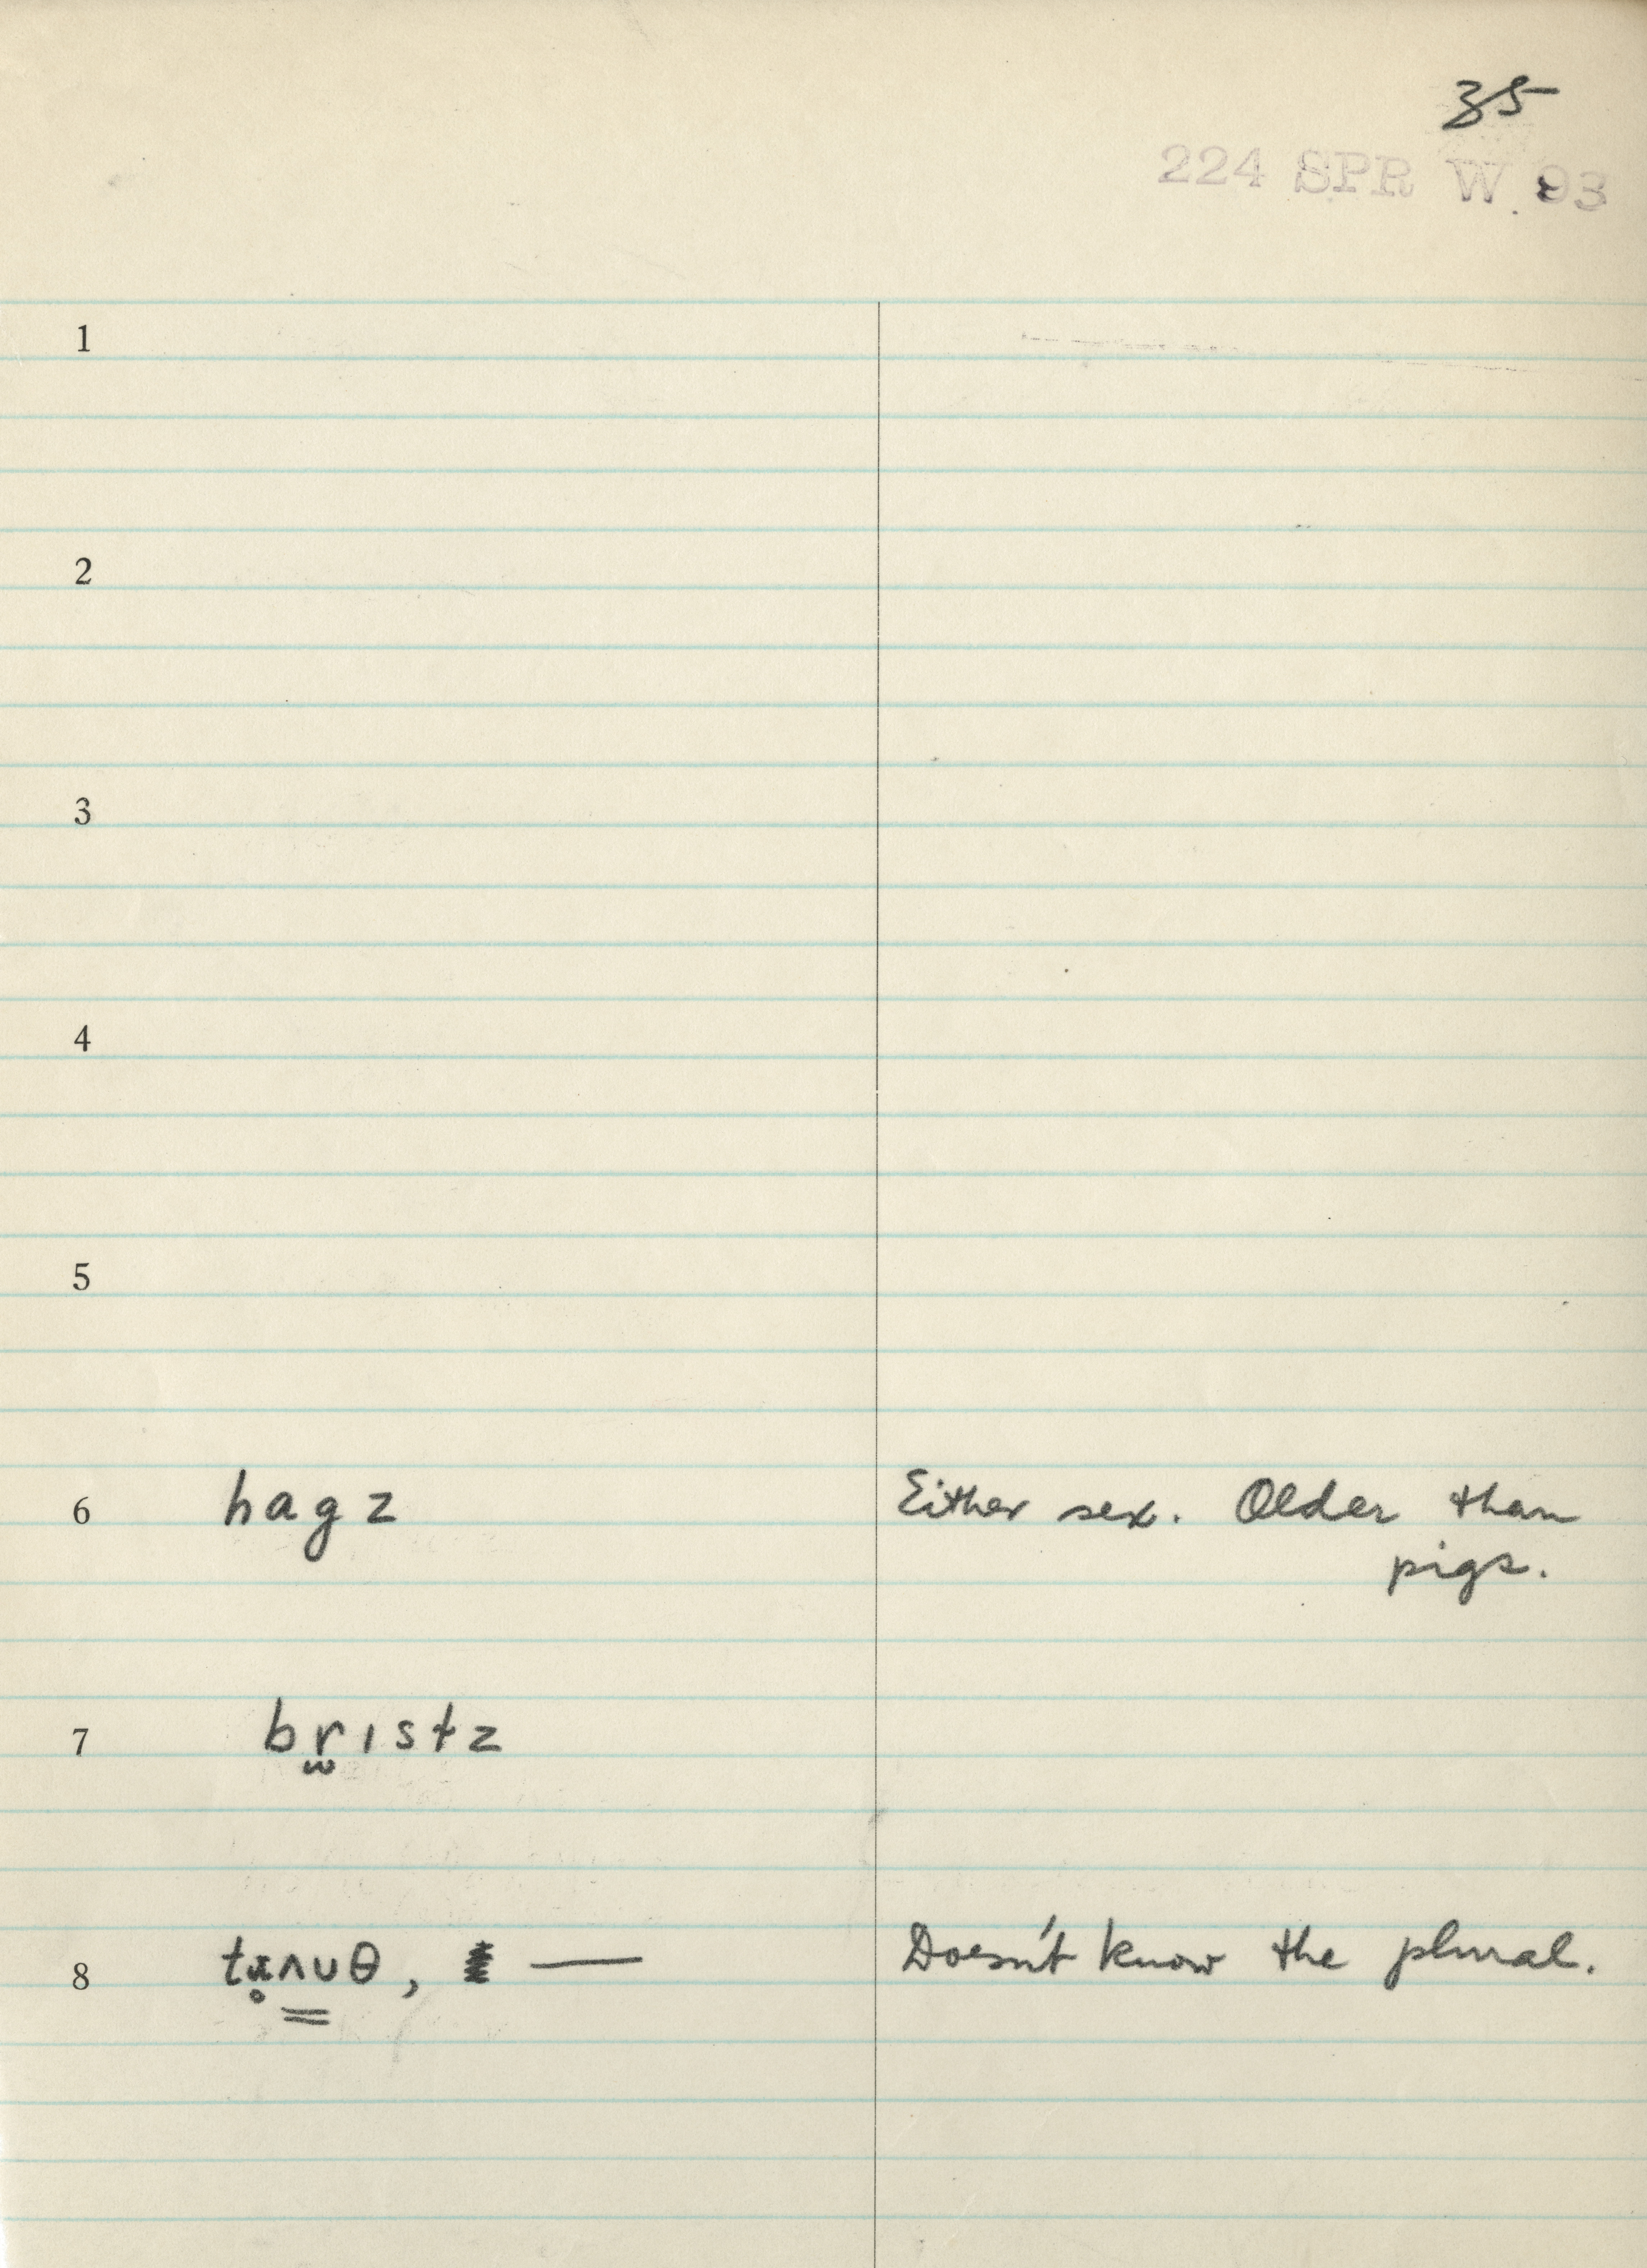 35
224 SPR W 93
1
2
3
4
5
6 hagz Either sex. Older than
pigs.
7 br̫ɪstz
8 Doesn't know the plural.